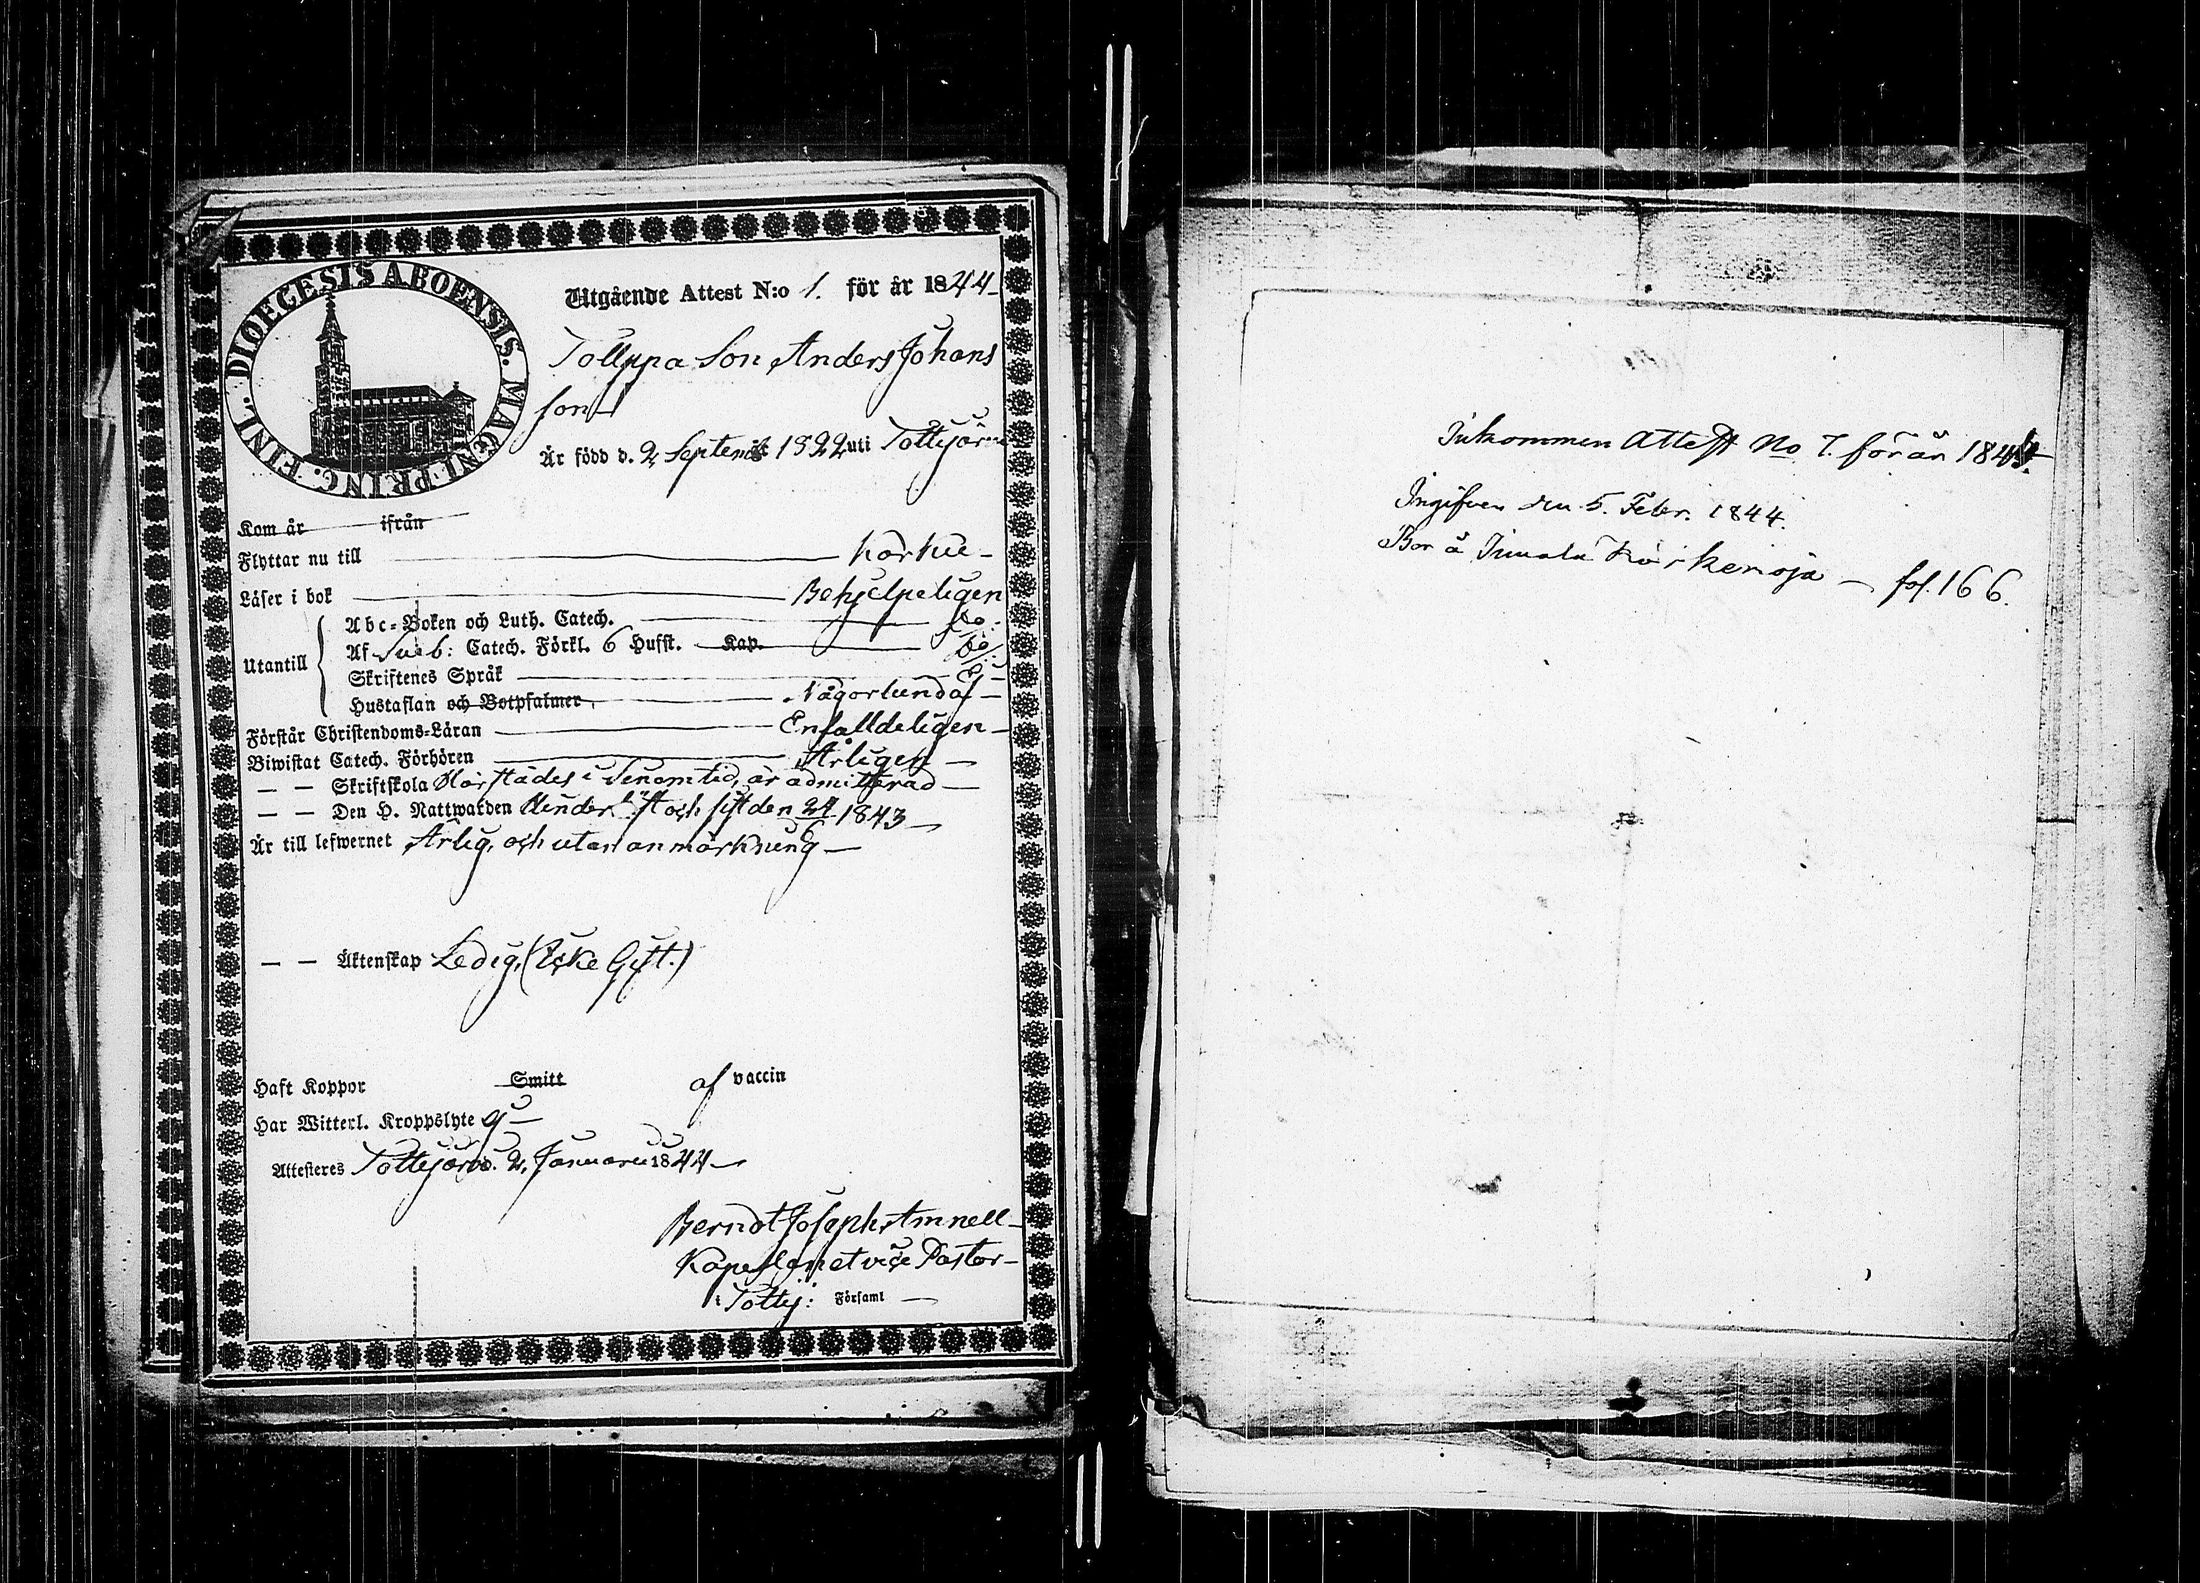 DIOECESIS ABOENSIS. MAGNI PRINC. FINL.
Utgående Attest N:o 1. för år 1844
Tolppa Son Anders Johans
son
Är född d. 2 Septemb 1822 uti Tottijärvi
Kom år ifrån
Flyttar nu till Karkku
Läser i bok Behjelpeligen
Utantill
Abc-Boken och Luth. Catech. do:
Af Sveb: Catech. Förkl. 6 Hufst. Kap. do:
Skriftenes Språk ej
Hustaflan och Botpsalmer Någorlunda
Förstår Christendoms-Läran Enfalldeligen
Biwistat Catech. Förhören Årligen
— — Skriftskola Härstädes i Sinom tid, är admitterad
— — Den H. Nattwarden Under höst och sist den 24/6 1843
Är till lefwernet Ärlig, och utan anmärkning
— — Äktenskap Ledig, (Icke Gift.)
Haft Koppor Smitt af vaccin
Har Witterl. Kroppslyte ej
Attesteres Tottijärvi d. 2, Januarii 1844
Berndt Joseph Amnell
Kapellan et vice Pastor
i Tottij: Församl
Inkommen Attest No 7. för år 1844.
Ingifven den 5. Febr. 1844.
Bor å Jimala Koskenoja — fol. 166.